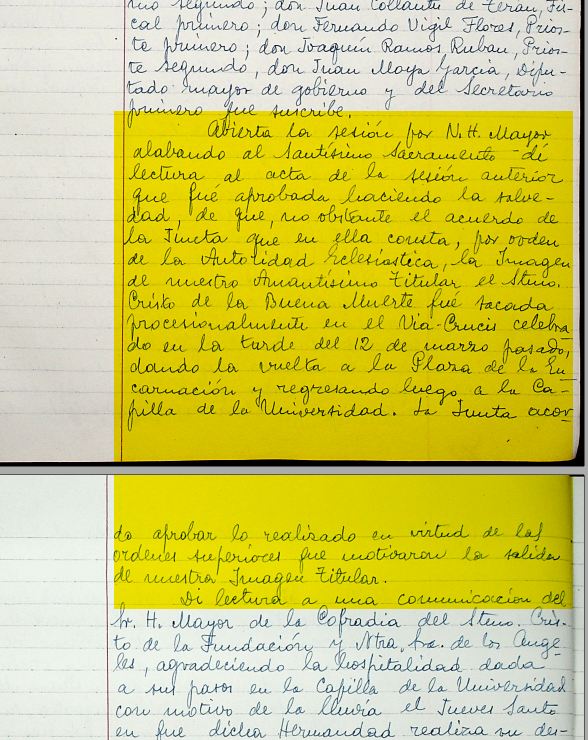 mo segundo; don Juan Collantes de Terán, Fis-
cal primero; don Fernando Vigil Flores, Prios-
te primero; don Joaquín Ramos Rubau, Prios-
te segundo, don Juan Moya García, Dipu-
tado mayor de gobierno y del Secretario
primero que suscribe.
Abierta la sesión por N.H. Mayor
alabando al Santísimo Sacramento di
lectura al acta de la sesión anterior
que fué aprobada haciendo la salve-
dad, de que, no obstante el acuerdo de
la Junta que en ella consta, por orden
de la Autoridad Eclesiástica, la Imagen
de nuestro Amantísimo Titular el Stmo.
Cristo de la Buena Muerte fué sacada
procesionalmente en el Via-Crucis celebra-
do en la tarde del 12 de marzo pasado,
dando la vuelta a la Plaza de la En-
carnación y regresando luego a la Ca-
pilla de la Universidad. La Junta acor-
do aprobar lo realizado en virtud de las
ordenes superiores que motivaron la salida
de nuestra Imagen Titular.
Di lectura a una comunicación del
Sr. H. Mayor de la Cofradía del Stmo. Cris-
to de la Fundación y Ntra. Sra. de los Ange-
les, agradeciendo la hospitalidad dada
a sus pasos en la Capilla de la Universidad
con motivo de la lluvia el Jueves Santo
en que dicha Hermandad realiza su des-